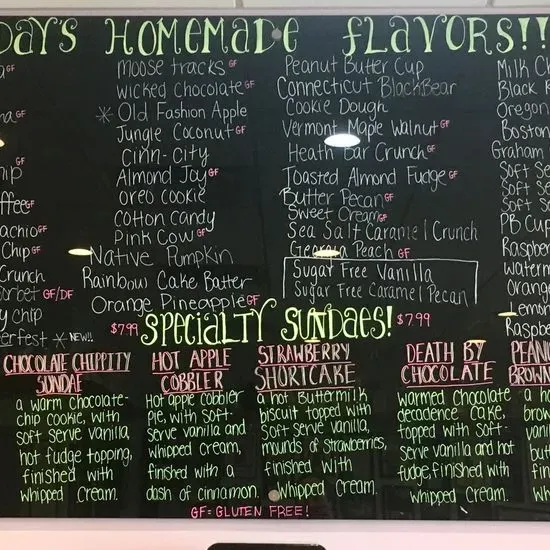 DAY'S HOMEMADE FLAVORS!!
GF
GF
hip
GF
ffee GF
achio GF
Chip GF
Crunch
orbet GF/DF
y chip
erfest * NEW!!
Moose Tracks GF
Wicked Chocolate GF
* Old Fashion Apple
Jungle Coconut GF
Cinn-City
Almond Joy GF
Oreo Cookie
Cotton Candy
Pink Cow GF
Native Pumpkin
Rainbow Cake Batter
Orange Pineapple GF
Peanut Butter Cup
Connecticut BlackBear
Cookie Dough
Vermont Maple Walnut GF
Heath Bar Crunch GF
Toasted Almond Fudge GF
Butter Pecan GF
Sweet Cream GF
Sea Salt Caramel Crunch
Georgia Peach GF
Sugar Free Vanilla
Sugar Free Caramel Pecan
Milk Ch
Black R
Oregon
Boston
Graham
Soft Se
Soft Se
Soft Se
PB Cup
Raspbe
Waterm
Orange
Lemon
Raspbe
$7.99 SPECIALTY SUNDAES! $7.99
CHOCOLATE CHIPPITY
SUNDAE
a warm chocolate-
chip cookie, with
soft serve vanilla,
hot fudge topping,
finished with
whipped cream.
HOT APPLE
COBBLER
Hot apple cobbler
pie, with soft-
serve vanilla and
whipped cream,
finished with a
dash of cinnamon.
STRAWBERRY
SHORTCAKE
a hot buttermilk
biscuit topped with
soft serve vanilla,
mounds of strawberries,
finished with
whipped cream.
DEATH BY
CHOCOLATE
warmed chocolate
decadence cake,
topped with soft-
serve vanilla and hot
fudge, finished with
whipped cream.
PEANU
BROWN
a ho
brow
vani
but
fin
wh
GF=GLUTEN FREE!